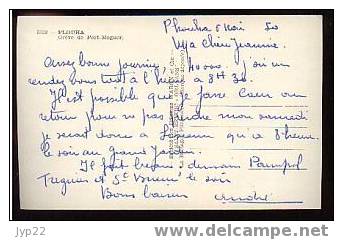 PLOUHA
Grève de Port-Moguer.
Plouha 6 Mai 50
Ma chère Jeanne.
Assez bonne journée, 40000. j'ai un
rendez vous tout à l'heure à 8H 30.
Il est possible que je fasse Caen au
retour pour ne pas perdre mon samedi
je serai donc à Lisieux qu'à 8 heures
le soir au Grand Jardin.
Il fait beau demain Paimpol
Treguier et St Brieuc le soir
Bons baisers
André
jyp22
delcampe.net